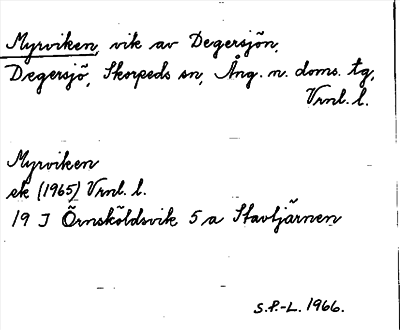 Myrviken, vik av Degersjön,
Degersjö, Skorpeds sn, Ång. n. doms. tg,
Vrnl. l.
Myrviken
ek (1965) Vrnl. l.
19 J Örnsköldsvik 5 a Stavtjärnen
S.P.-L. 1966.